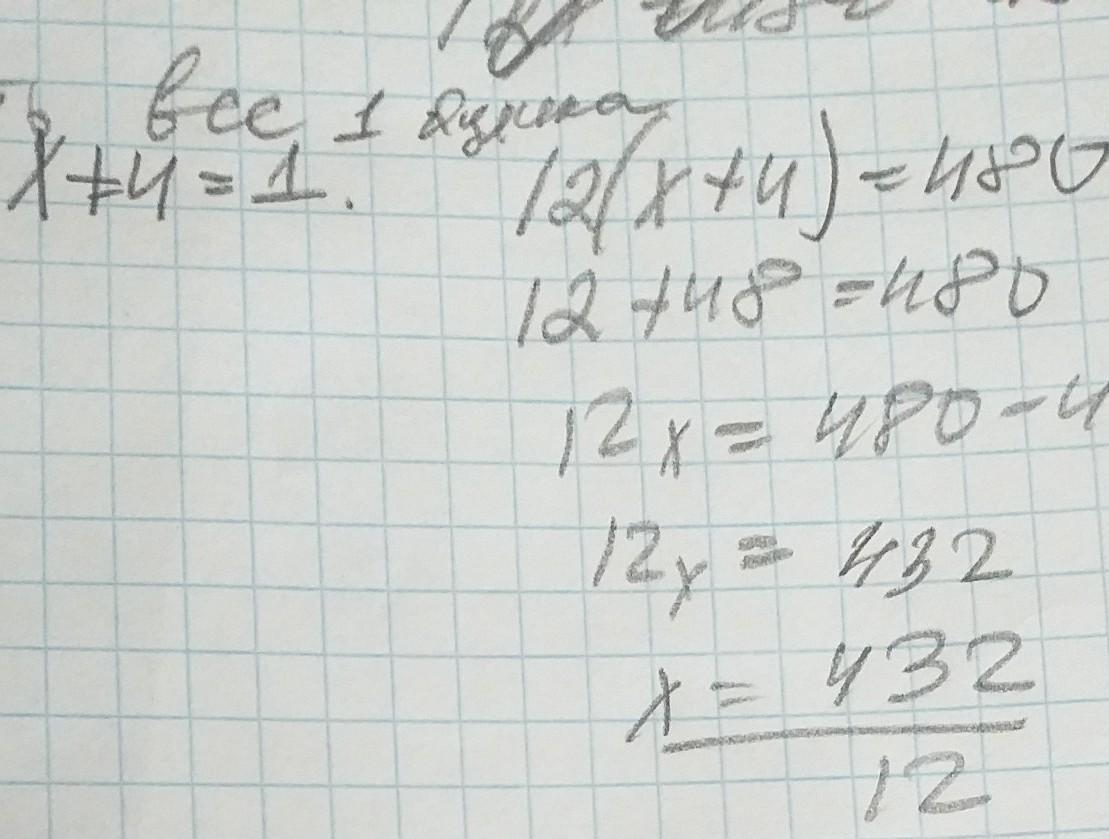 вес 1 ящика
x+4=1.
12(x+4)=480
12+48=480
12x=480-4
12x=432
x=432
12